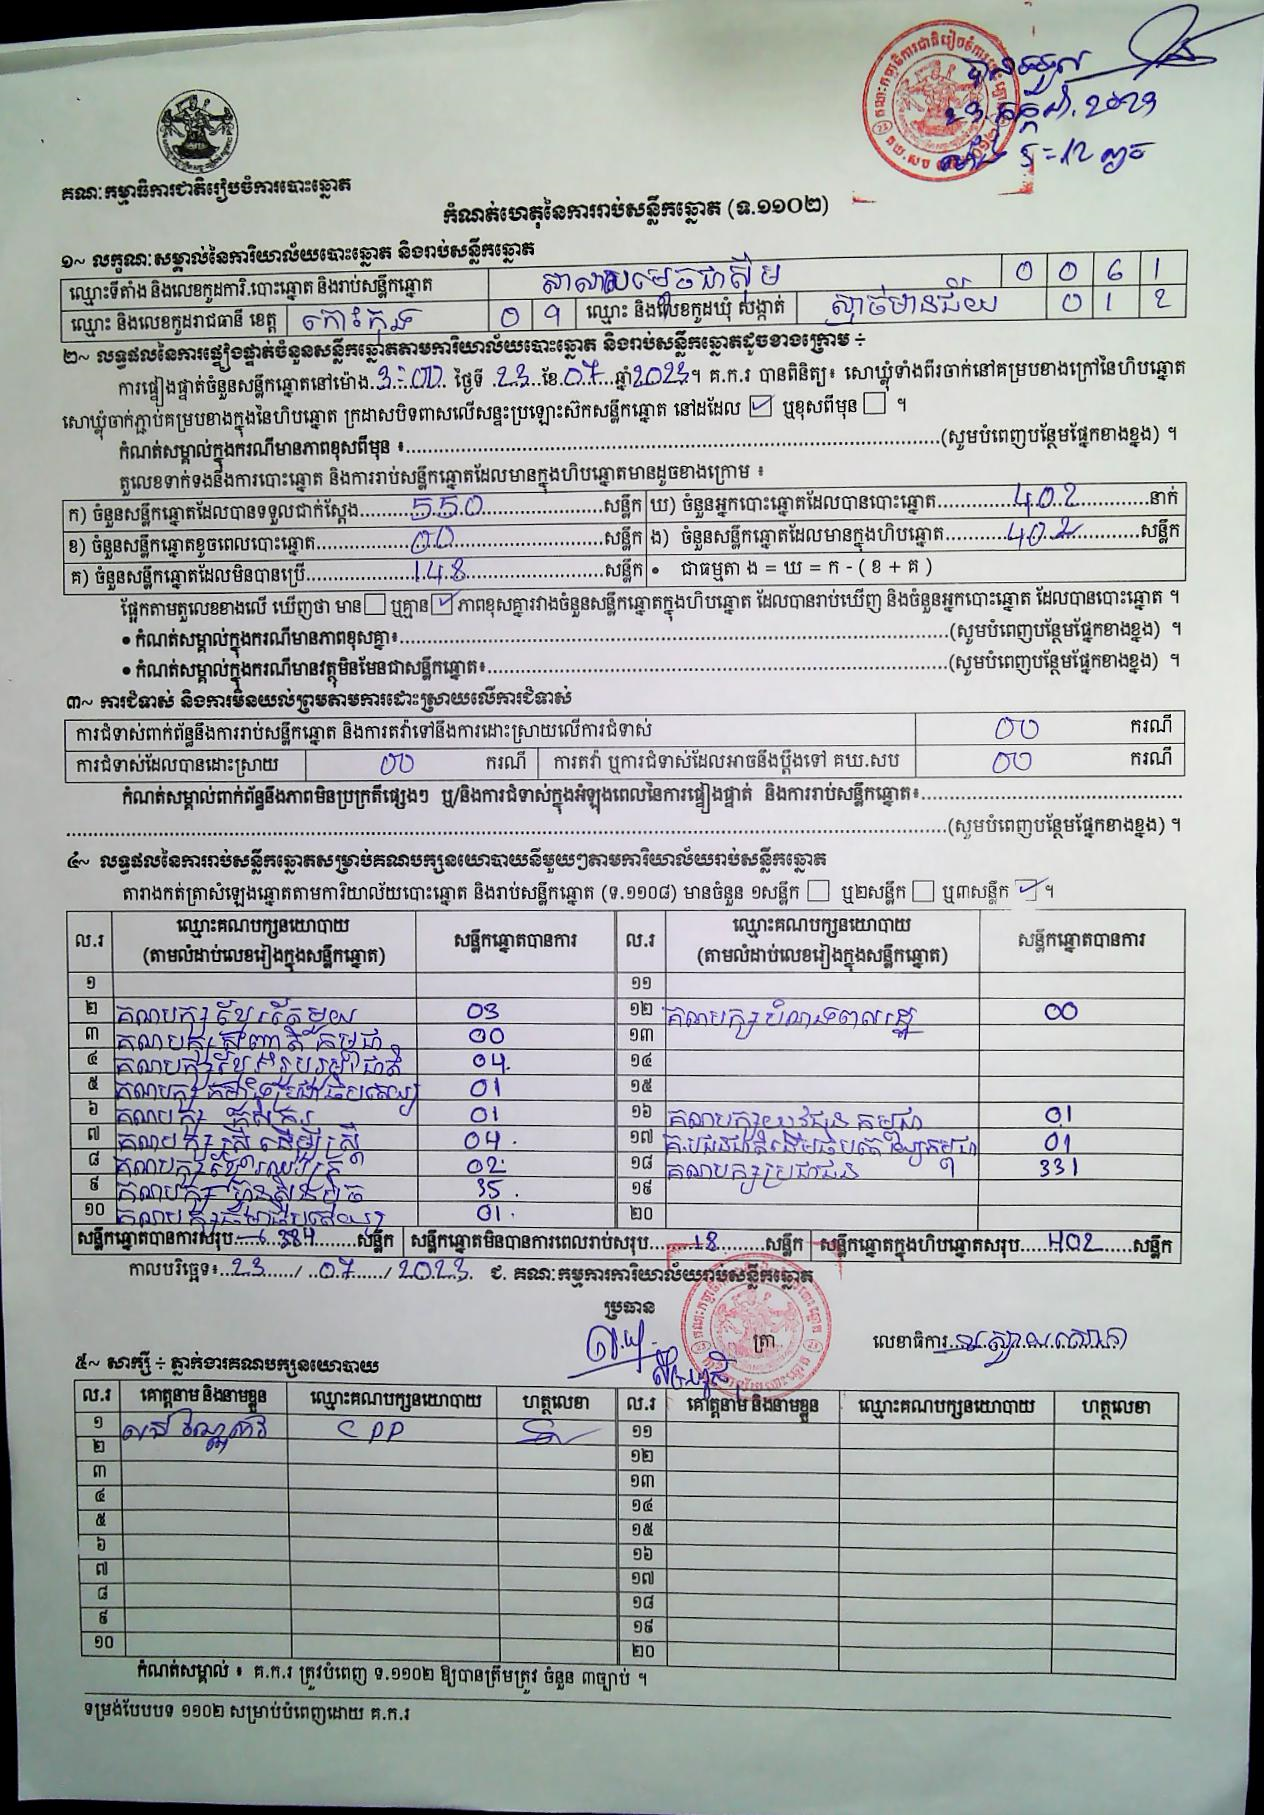 បានទទួល
23 កក្កដា. 2023
គណៈកម្មាធិការជាតិរៀបចំការបោះឆ្នោត
កំណត់ហេតុនៃការរាប់សន្លឹកឆ្នោត (ទ.១១០២)
១~ លក្ខណៈសម្គាល់នៃការិយាល័យបោះឆ្នោត និងរាប់សន្លឹកឆ្នោត
ឈ្មោះទីតាំង និងលេខកូដការិ.បោះឆ្នោត និងរាប់សន្លឹកឆ្នោត សាលាសម្តេចជាស៊ីម 0 0 6 1
ឈ្មោះ និងលេខកូដរាជធានី ខេត្ត កោះកុង 0 9 ឈ្មោះ និងលេខកូដឃុំ សង្កាត់ ស្មាច់មានជ័យ 0 1 2
២~ លទ្ធផលនៃការផ្ទៀងផ្ទាត់ចំនួនសន្លឹកឆ្នោតតាមការិយាល័យបោះឆ្នោត និងរាប់សន្លឹកឆ្នោតដូចខាងក្រោម ÷
ការផ្ទៀងផ្ទាត់ចំនួនសន្លឹកឆ្នោតនៅម៉ោង 3:00 ថ្ងៃទី 23 ខែ 07 ឆ្នាំ 2023។ គ.ក.រ បានពិនិត្យ៖ សោឃ្លុំទាំងពីរចាក់នៅគម្របខាងក្រៅនៃហិបឆ្នោត
សោឃ្លុំចាក់ភ្ជាប់គម្របខាងក្នុងនៃហិបឆ្នោត ក្រដាសបិទពាសលើសន្ទះប្រឡោះស៊កសន្លឹកឆ្នោត នៅដដែល ☑ ឬខុសពីមុន ☐ ។
កំណត់សម្គាល់ក្នុងករណីមានភាពខុសពីមុន ៖ (សូមបំពេញបន្ថែមផ្នែកខាងខ្នង) ។
តួលេខទាក់ទងនឹងការបោះឆ្នោត និងការរាប់សន្លឹកឆ្នោតដែលមានក្នុងហិបឆ្នោតមានដូចខាងក្រោម ៖
ក) ចំនួនសន្លឹកឆ្នោតដែលបានទទួលជាក់ស្តែង 550 សន្លឹក ឃ) ចំនួនអ្នកបោះឆ្នោតដែលបានបោះឆ្នោត 402 នាក់
ខ) ចំនួនសន្លឹកឆ្នោតខូចពេលបោះឆ្នោត 00 សន្លឹក ង) ចំនួនសន្លឹកឆ្នោតដែលមានក្នុងហិបឆ្នោត 402 សន្លឹក
គ) ចំនួនសន្លឹកឆ្នោតដែលមិនបានប្រើ 148 សន្លឹក • ជាធម្មតា ង = ឃ = ក - ( ខ + គ )
ផ្អែកតាមតួលេខខាងលើ ឃើញថា មាន ☐ ឬគ្មាន ☑ ភាពខុសគ្នារវាងចំនួនសន្លឹកឆ្នោតក្នុងហិបឆ្នោត ដែលបានរាប់ឃើញ និងចំនួនអ្នកបោះឆ្នោត ដែលបានបោះឆ្នោត ។
• កំណត់សម្គាល់ក្នុងករណីមានភាពខុសគ្នា៖ (សូមបំពេញបន្ថែមផ្នែកខាងខ្នង) ។
• កំណត់សម្គាល់ក្នុងករណីមានវត្ថុមិនមែនជាសន្លឹកឆ្នោត៖ (សូមបំពេញបន្ថែមផ្នែកខាងខ្នង) ។
៣~ ការជំទាស់ និងការមិនយល់ព្រមតាមការដោះស្រាយលើការជំទាស់
ការជំទាស់ពាក់ព័ន្ធនឹងការរាប់សន្លឹកឆ្នោត និងការតវ៉ាទៅនឹងការដោះស្រាយលើការជំទាស់ 00 ករណី
ការជំទាស់ដែលបានដោះស្រាយ 00 ករណី ការតវ៉ា ឬការជំទាស់ដែលអាចនឹងប្តឹងទៅ គឃ.សប 00 ករណី
កំណត់សម្គាល់ពាក់ព័ន្ធនឹងភាពមិនប្រក្រតីផ្សេងៗ ឬ/និងការជំទាស់ក្នុងអំឡុងពេលនៃការផ្ទៀងផ្ទាត់ និងការរាប់សន្លឹកឆ្នោត៖
(សូមបំពេញបន្ថែមផ្នែកខាងខ្នង) ។
៤~ លទ្ធផលនៃការរាប់សន្លឹកឆ្នោតសម្រាប់គណបក្សនយោបាយនីមួយៗតាមការិយាល័យរាប់សន្លឹកឆ្នោត
តារាងកត់ត្រាសំឡេងឆ្នោតតាមការិយាល័យបោះឆ្នោត និងរាប់សន្លឹកឆ្នោត (ទ.១១០៨) មានចំនួន ១សន្លឹក ☐ ឬ២សន្លឹក ☐ ឬ៣សន្លឹក ☑ ។
ល.រ ឈ្មោះគណបក្សនយោបាយ (តាមលំដាប់លេខរៀងក្នុងសន្លឹកឆ្នោត) សន្លឹកឆ្នោតបានការ ល.រ ឈ្មោះគណបក្សនយោបាយ (តាមលំដាប់លេខរៀងក្នុងសន្លឹកឆ្នោត) សន្លឹកឆ្នោតបានការ
១ ១១
២ គណបក្សខ្មែរតែមួយ 03 ១២ គណបក្សបំណងពលរដ្ឋ 00
៣ គណបក្សសញ្ជាតិកម្ពុជា 00 ១៣
៤ គណបក្សខ្មែររួបរួមជាតិ 04 ១៤
៥ គណបក្សកម្លាំងប្រជាធិបតេយ្យ 01 ១៥
៦ គណបក្សកសិករ 01 ១៦ គណបក្សយុវជនកម្ពុជា 01
៧ គណបក្សស្ត្រីដើម្បីស្ត្រី 04 ១៧ 01
៨ 02 ១៨ គណបក្សប្រជាជន 331
៩ គណបក្សហ៊្វុនស៊ិនប៉ិច 35 ១៩
១០ គណបក្សធម្មាធិបតេយ្យ 01 ២០
សន្លឹកឆ្នោតបានការសរុប 384 សន្លឹក សន្លឹកឆ្នោតមិនបានការពេលរាប់សរុប 18 សន្លឹក សន្លឹកឆ្នោតក្នុងហិបឆ្នោតសរុប 402 សន្លឹក
កាលបរិច្ឆេទ៖ 23 / 07 / 2023 ជ. គណៈកម្មការការិយាល័យរាប់សន្លឹកឆ្នោត
ប្រធាន
ត្រា លេខាធិការ
៥~ សាក្សី ÷ ភ្នាក់ងារគណបក្សនយោបាយ
ល.រ គោត្តនាម និងនាមខ្លួន ឈ្មោះគណបក្សនយោបាយ ហត្ថលេខា ល.រ គោត្តនាម និងនាមខ្លួន ឈ្មោះគណបក្សនយោបាយ ហត្ថលេខា
១ CPP ១១
២ ១២
៣ ១៣
៤ ១៤
៥ ១៥
៦ ១៦
៧ ១៧
៨ ១៨
៩ ១៩
១០ ២០
កំណត់សម្គាល់ ៖ គ.ក.រ ត្រូវបំពេញ ទ.១១០២ ឱ្យបានត្រឹមត្រូវ ចំនួន ៣ច្បាប់ ។
ទម្រង់បែបបទ ១១០២ សម្រាប់បំពេញដោយ គ.ក.រ